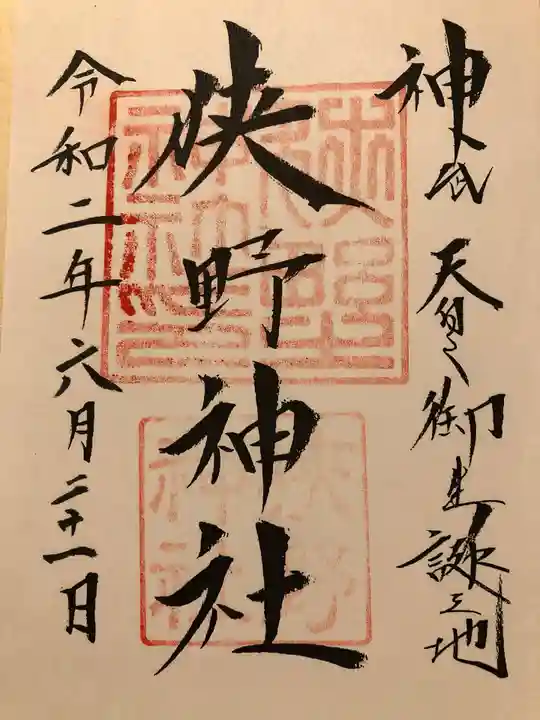 神武天皇御生誕之地
狭野神社
令和二年六月二十一日